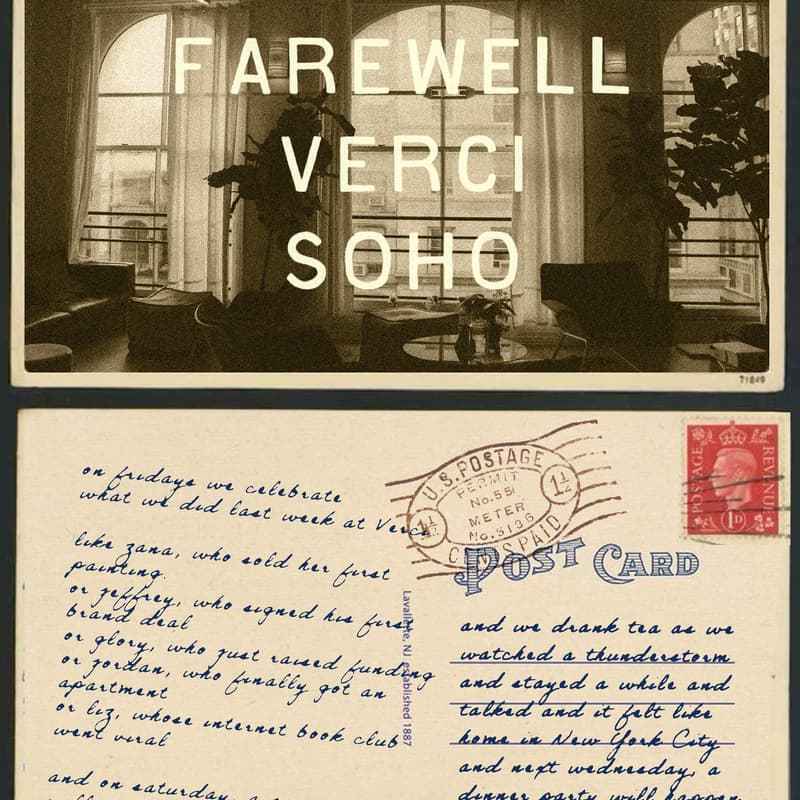 FAREWELL
VERCI
SOHO
71849
on fridays we celebrate
what we did last week at Verci
like zana, who sold her first
painting.
or jeffrey, who signed his first
brand deal
or glory, who just raised funding
or jordan, who finally got an
apartment
or liz, whose internet book club
went viral
and on saturday, a
U.S. POSTAGE
1½
PERMIT
No. 551
METER
No. 5136
1½
PAID
POSTAGE
REVENUE
1D
POST CARD
Lavallette, NJ established 1887
and we drank tea as we
watched a thunderstorm
and stayed a while and
talked and it felt like
home in New York City
and next wednesday, a
dinner party will happen